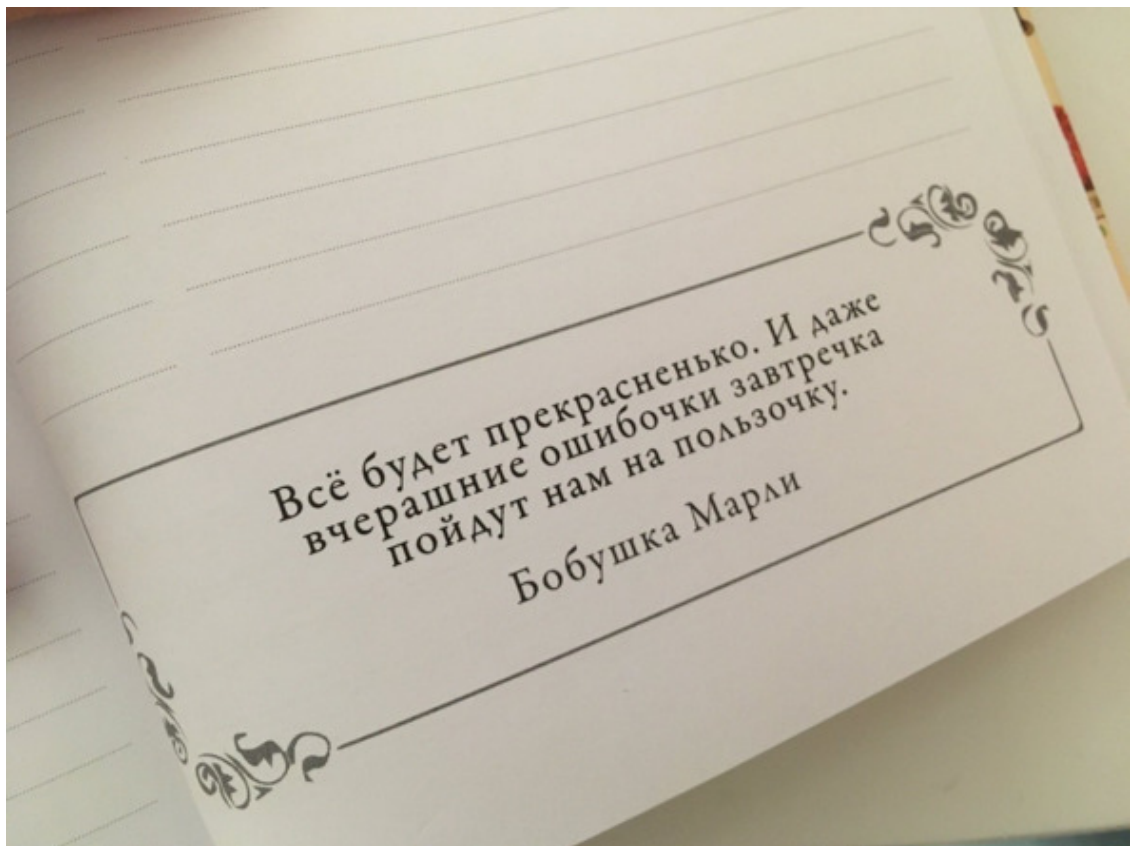 Всё будет прекрасненько. И даже
вчерашние ошибочки завтречка
пойдут нам на пользочку.
Бобушка Марли